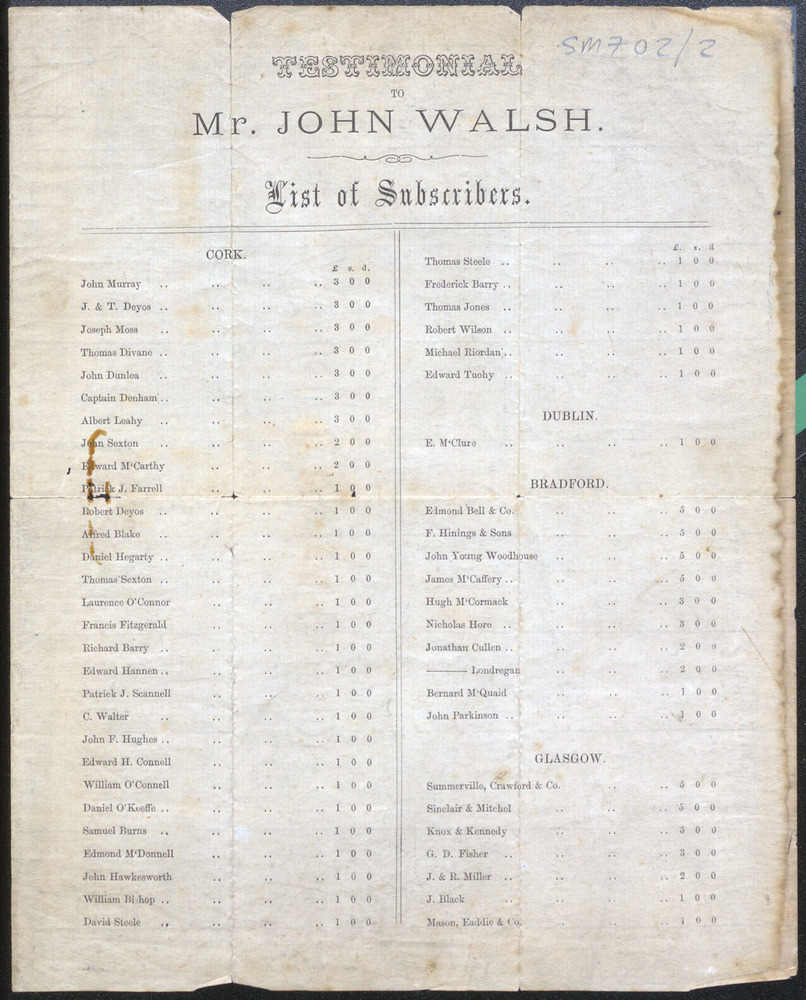 SM702/2
TESTIMONIAL
TO
Mr. JOHN WALSH.
List of Subscribers.
CORK.
£ s. d.
John Murray .. .. .. .. 3 0 0
J. & T. Deyos .. .. .. .. 3 0 0
Joseph Moss .. .. .. .. 3 0 0
Thomas Divane .. .. .. .. 3 0 0
John Dunlea .. .. .. .. 3 0 0
Captain Denham .. .. .. .. 3 0 0
Albert Leahy .. .. .. .. 3 0 0
John Sexton .. .. .. .. 2 0 0
Edward M'Carthy .. .. .. 2 0 0
Patrick J. Farrell .. .. .. 1 0 0
Robert Deyos .. .. .. .. 1 0 0
Alfred Blake .. .. .. .. 1 0 0
Daniel Hegarty .. .. .. .. 1 0 0
Thomas Sexton .. .. .. .. 1 0 0
Laurence O'Connor .. .. .. 1 0 0
Francis Fitzgerald .. .. .. 1 0 0
Richard Barry .. .. .. .. 1 0 0
Edward Hannen .. .. .. .. 1 0 0
Patrick J. Scannell .. .. .. 1 0 0
C. Walter .. .. .. .. 1 0 0
John F. Hughes .. .. .. .. 1 0 0
Edward H. Connell .. .. .. 1 0 0
William O'Connell .. .. .. 1 0 0
Daniel O'Keeffe .. .. .. .. 1 0 0
Samuel Burns .. .. .. .. 1 0 0
Edmond M'Donnell .. .. .. 1 0 0
John Hawkesworth .. .. .. 1 0 0
William Bishop .. .. .. .. 1 0 0
David Steele .. .. .. .. 1 0 0
£. s. d
Thomas Steele .. .. .. .. 1 0 0
Frederick Barry .. .. .. .. 1 0 0
Thomas Jones .. .. .. .. 1 0 0
Robert Wilson .. .. .. .. 1 0 0
Michael Riordan .. .. .. .. 1 0 0
Edward Tuohy .. .. .. .. 1 0 0
DUBLIN.
E. M'Clure .. .. .. .. 1 0 0
BRADFORD.
Edmond Bell & Co. .. .. .. 5 0 0
F. Hinings & Sons .. .. .. 5 0 0
John Young Woodhouse .. .. .. 5 0 0
James M'Caffery .. .. .. .. 5 0 0
Hugh M'Cormack .. .. .. 3 0 0
Nicholas Hore .. .. .. .. 3 0 0
Jonathan Cullen .. .. .. .. 2 0 0
——— Londregan .. .. .. 2 0 0
Bernard M'Quaid .. .. .. 1 0 0
John Parkinson .. .. .. .. 1 0 0
GLASGOW.
Summerville, Crawford & Co. .. .. 5 0 0
Sinclair & Mitchel .. .. .. 5 0 0
Knox & Kennedy .. .. .. 5 0 0
G. D. Fisher .. .. .. .. 3 0 0
J. & R. Miller .. .. .. .. 2 0 0
J. Black .. .. .. .. 1 0 0
Mason, Eaddie & Co. .. .. .. 1 0 0